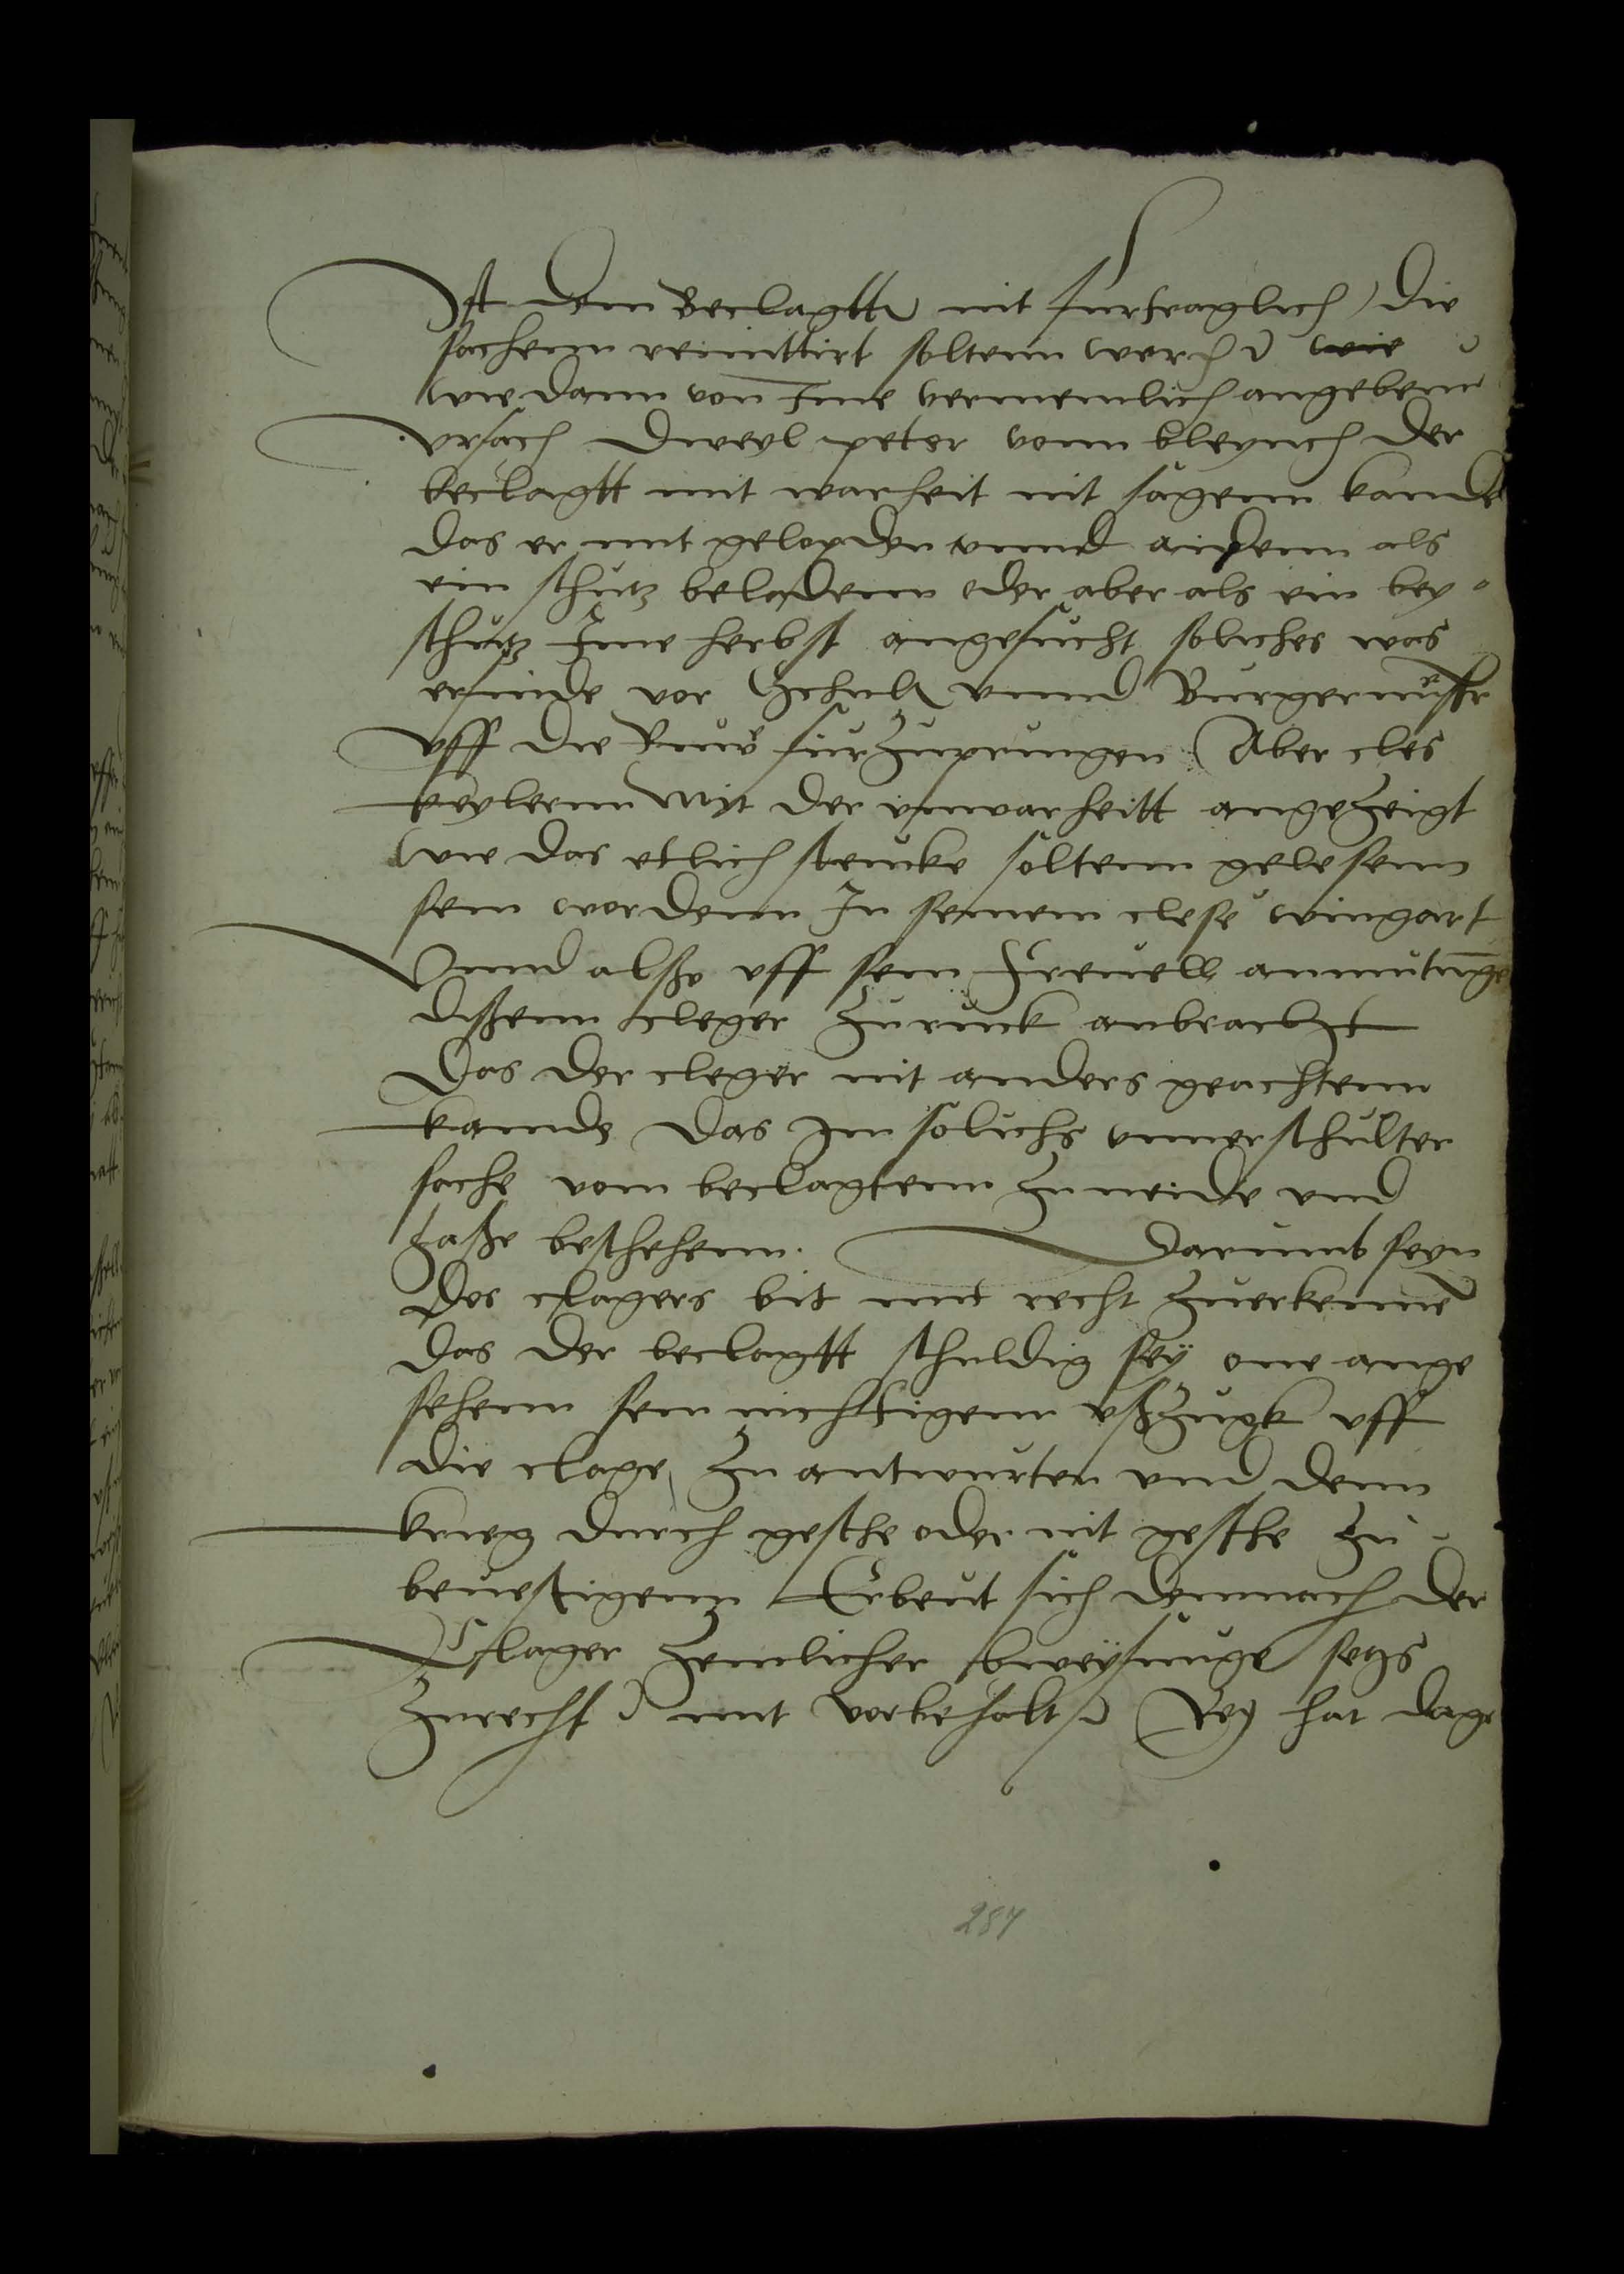 Ist dem Beclagtten nit furtraglich / Die
sachenn remittirt soltenn werden wie
wie dann von Ime vermeintlich angebenn
vrsach Dweyl peter vonn bleynich Der
beclagtt mit warheit nit sagenn kande
das er mit gelopden vnnd aidenn als
ein schutz beladenn oder aber als ein bey
schutz Ime herbst angesucht soliches was
er finde vor schulth vnnd Burgermeister
vff die Ruck furzupringen Aber cles
keylernn Mit der vnwarheitt angezeigt
wie das etlich steucke soltenn gelesenn
sein wordenn In seinem clese wingart
Vnnd alßo vff sein freuell anmutunge
dißenn cleger zuruck anbracht
Das der cleger nit anders geachtenn
kande Das Im solichs vnnverschulter
sache vom beclagtenn zu neide vnd
haße beschehenn. Darumb seyn
Des clagers bit mit recht zuerkennen
das der beclagtt schuldig seÿ one ange
sehenn sein nichtigenn vßzugk vff
die clage zu antwurten vnd denn
krieg durch gesthe oder nit gesthe zu
beuestigenn Erbeut sich demnach der
Clager zemlicher beweysunge setzs
zurecht mit vorbehalt Rey hat dage
287